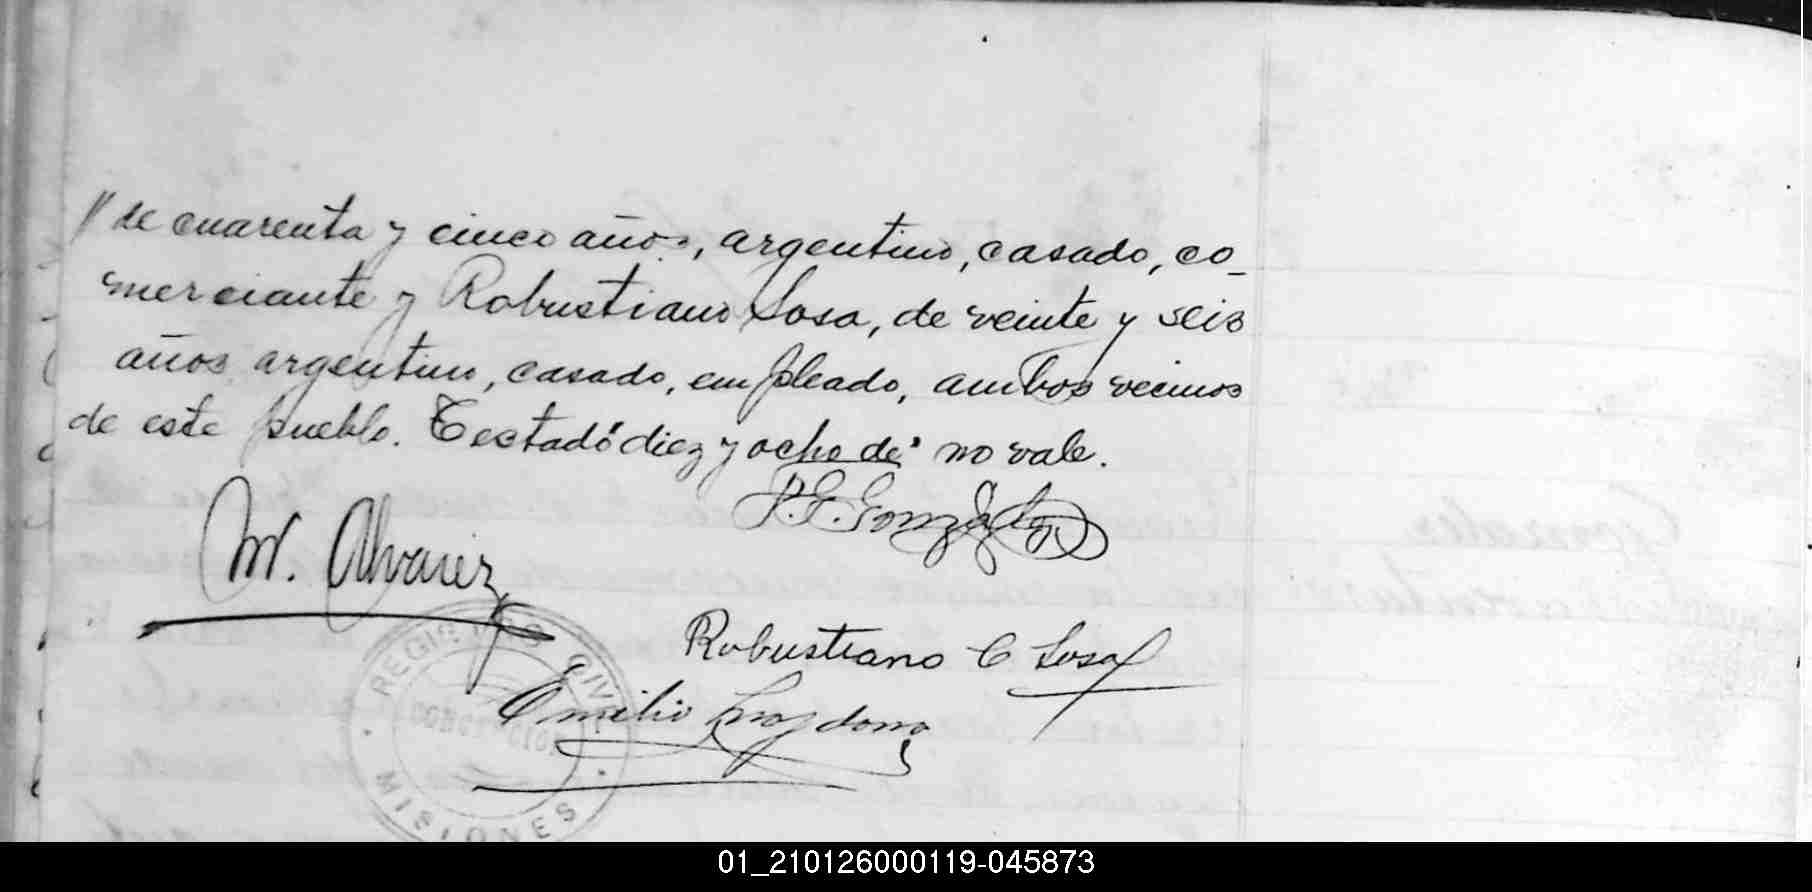 // de cuarenta y cinco años, argentino, casado, co_
merciante y Robustiano Sosa, de veinte y seis
años, argentino, casado, empleado, ambos vecinos
de este pueblo. Testado "diez y ocho de" no vale.
P. E. González
M. Alvarez
Robustiano C Sosa
Emilio
REGISTRO CIVIL
CONCEPCION
MISIONES
01_210126000119-045873